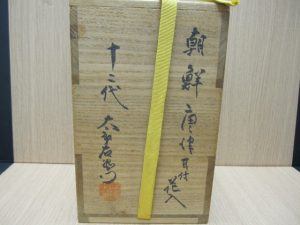 朝鮮唐津耳付花入
十二代 太郎右衛門